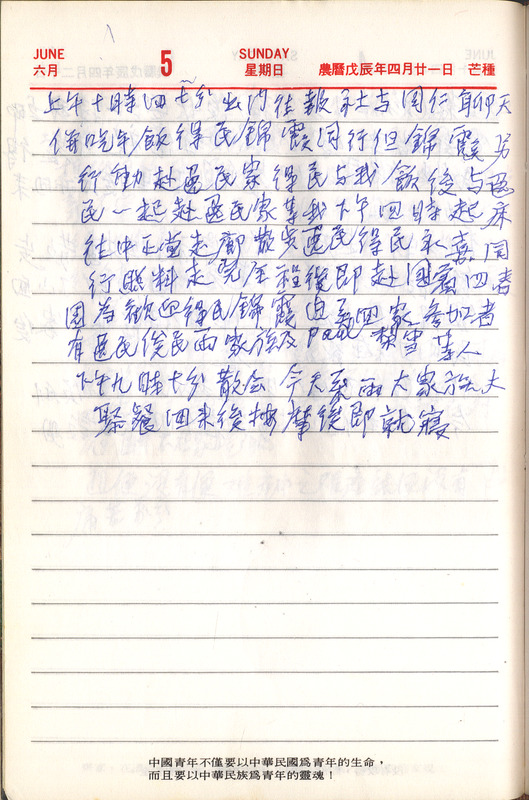 JUNE 5 SUNDAY
六月 星期日 農曆戊辰年四月廿一日 芒種
上午十時四十分出門往報社与同仁聊天
後吃午飯 得民錦霞同行但錦霞另
行動赴區民家得民与我飯後与區
民一起赴區民家等我下午四時起床
往中正堂走廊散步區民得民永嘉同
行 走完全程後即赴國賓四香
園為歡迎得民錦霞由美回家 參加者
有區民俊民兩家族及Paul 梨雪等人
下午九時七分散会 今天系兩大家族大
聚餐回來後按摩後即就寢
中國青年不僅要以中華民國爲青年的生命，
而且要以中華民族爲青年的靈魂！